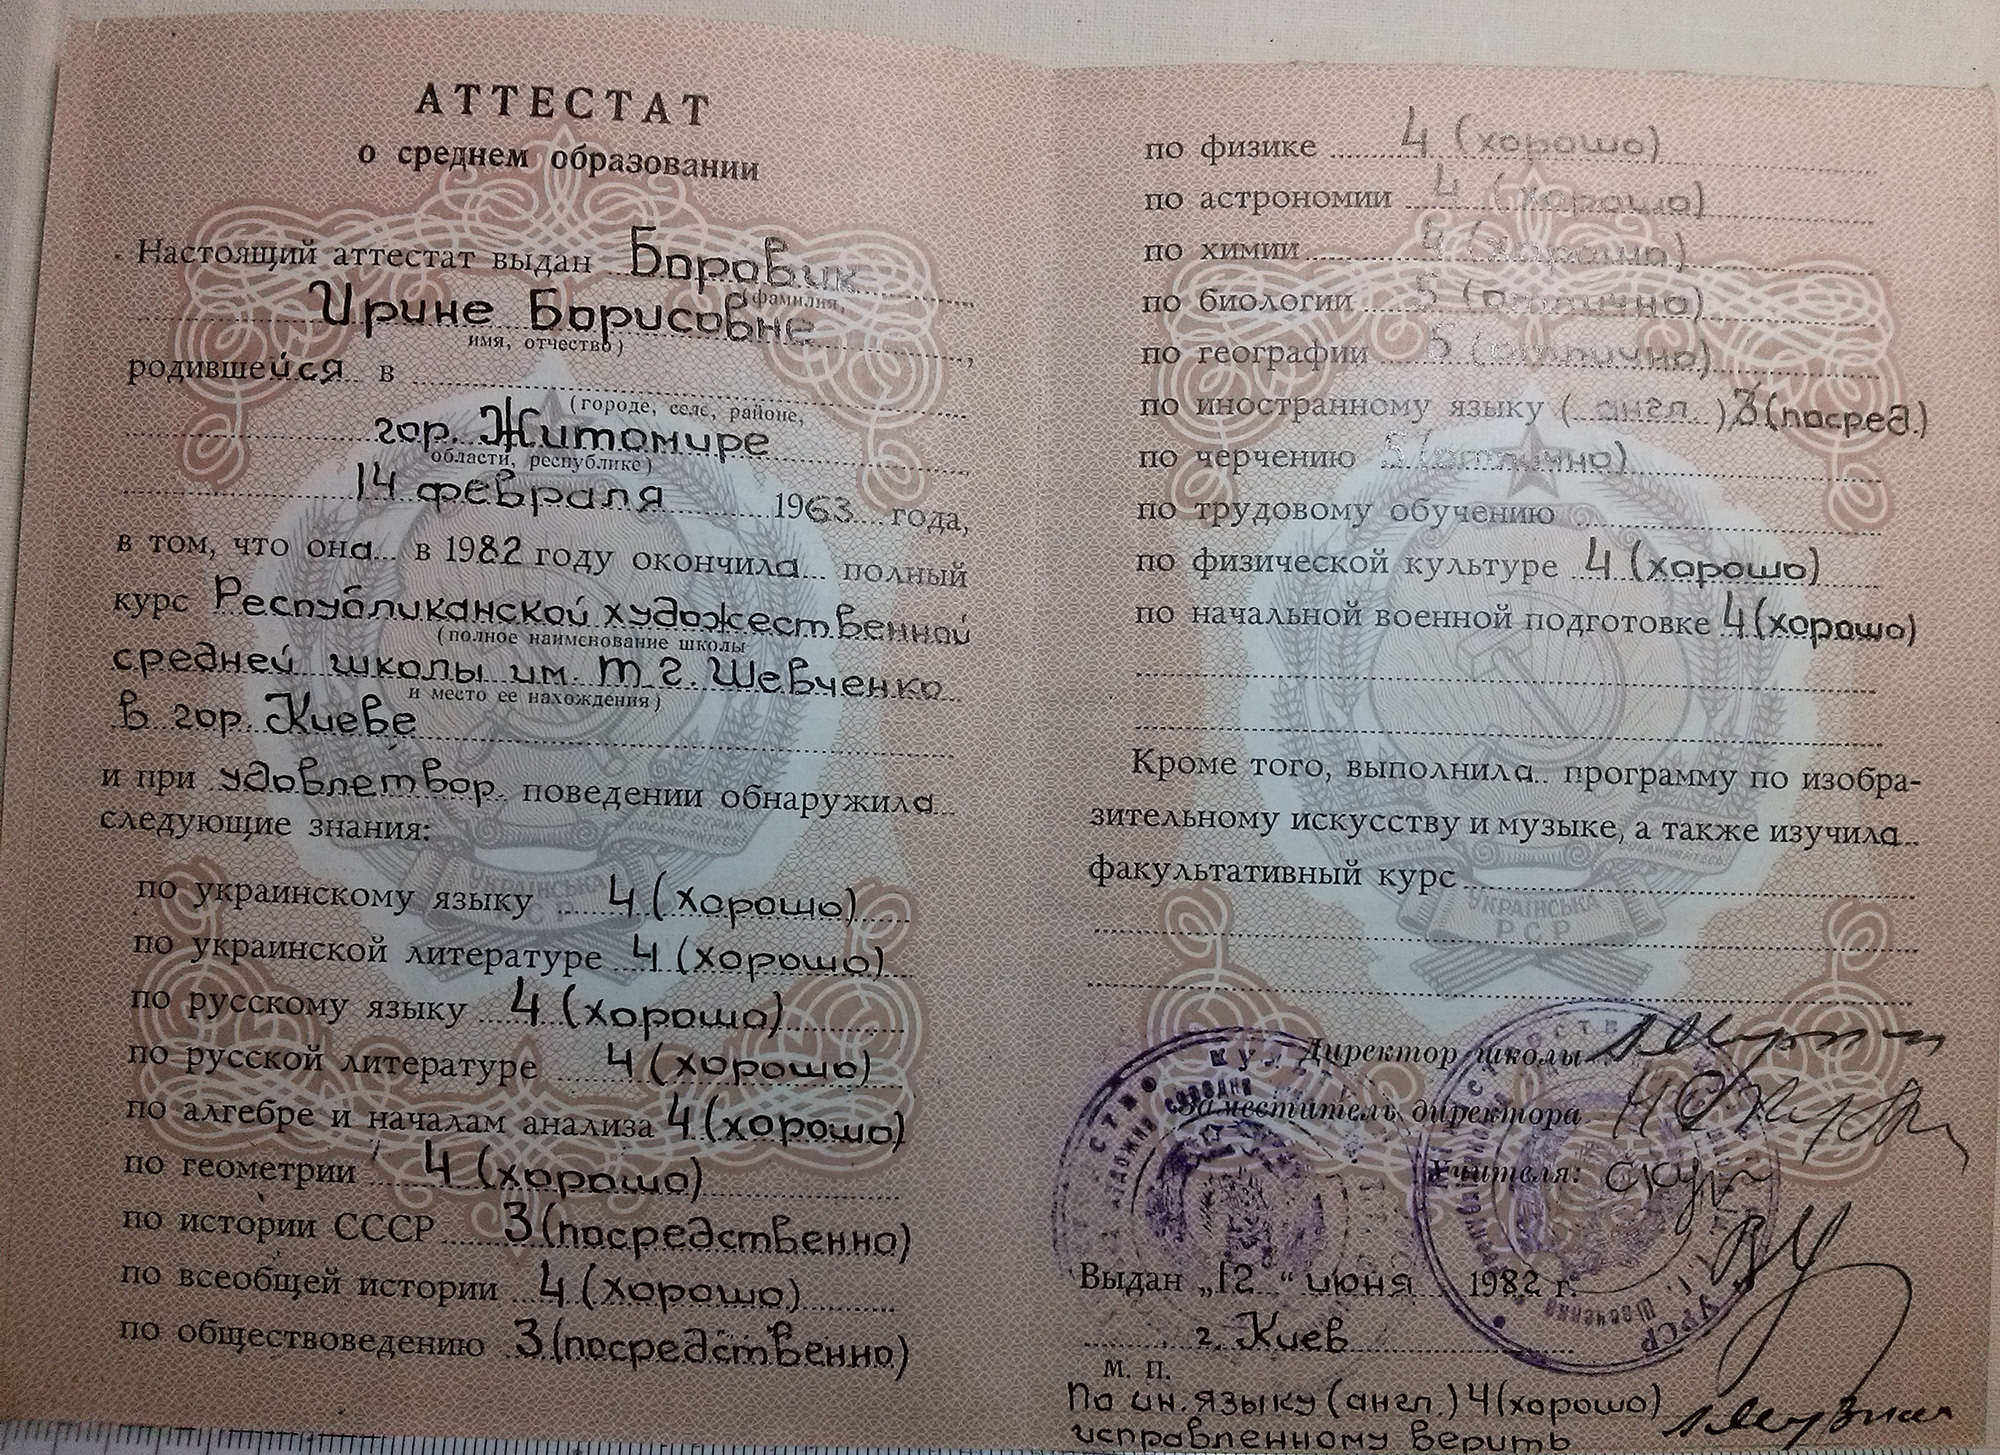 АТТЕСТАТ
о среднем образовании
Настоящий аттестат выдан Боровик
(фамилия,
Ирине Борисовне,
имя, отчество)
родившейся в
(городе, селе, районе,
гор. Житомире
области, республике)
14 февраля 1963 года,
в том, что она в 1982 году окончила полный
курс Республиканской художественной
(полное наименование школы
средней школы им. Т.Г. Шевченко
и место ее нахождения)
в гор. Киеве
и при удовлетвор. поведении обнаружила
следующие знания:
по украинскому языку 4 (хорошо)
по украинской литературе 4 (хорошо)
по русскому языку 4 (хорошо)
по русской литературе 4 (хорошо)
по алгебре и началам анализа 4 (хорошо)
по геометрии 4 (хорошо)
по истории СССР 3 (посредственно)
по всеобщей истории 4 (хорошо)
по обществоведению 3 (посредственно)
УКРАЇНСЬКА
РСР
по физике 4 (хорошо)
по астрономии 4 (хорошо)
по химии 4 (хорошо)
по биологии 5 (отлично)
по географии 5 (отлично)
по иностранному языку (англ.) 3 (посред.)
по черчению 5 (отлично)
по трудовому обучению
по физической культуре 4 (хорошо)
по начальной военной подготовке 4 (хорошо)
Кроме того, выполнила программу по изобра-
зительному искусству и музыке, а также изучила
факультативный курс
УКРАЇНСЬКА
РСР
Директор школы
Заместитель директора
Учителя:
Выдан „12“ июня 1982 г.
г. Киев
М. П.
По ин. языку (англ.) 4 (хорошо)
исправленному верить